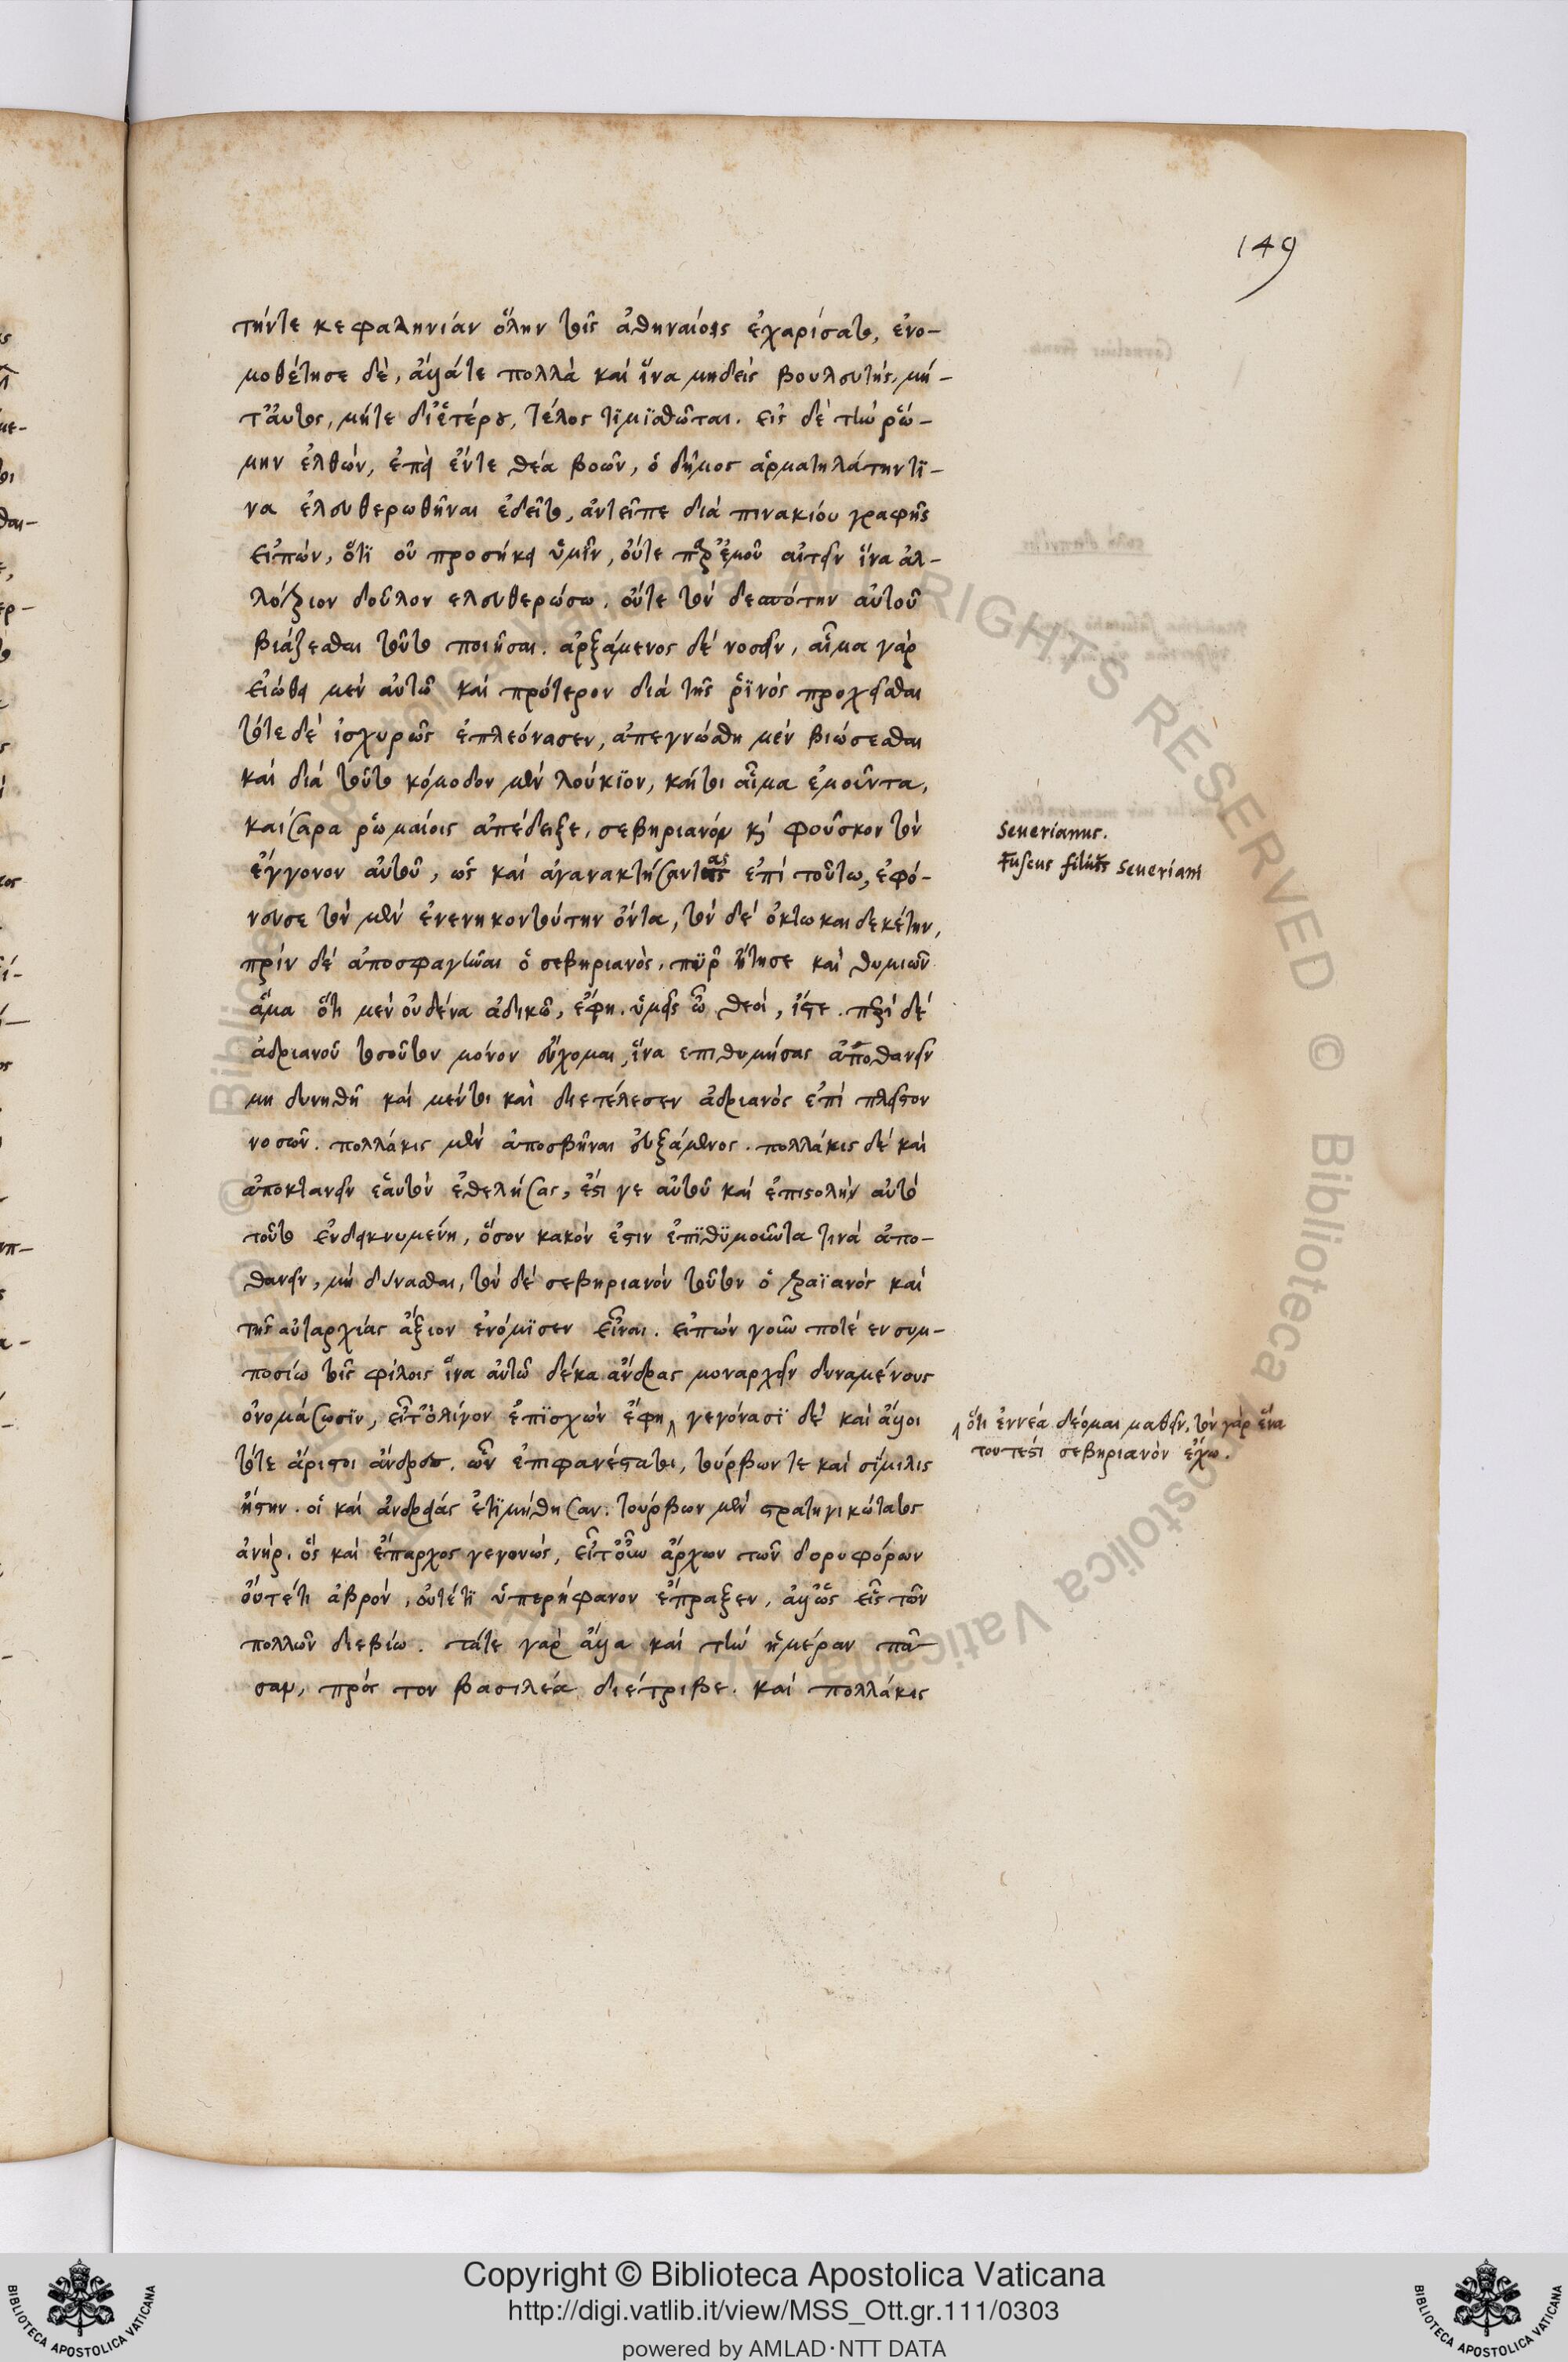 149
τήντε κεφαληνίαν ὅλην τοῖς ἀθηναίοις ἐχαρίσατο, ἐνο-
μοθέτησε δὲ, ἄλλάτε πολλὰ καὶ ἵνα μηδεὶς βουλευτής, μή-
τ' ἀυτος, μήτε δι' ἑτέρου, τέλος τι μισθῶται. εἰς δὲ τὴν ῥώ-
μην ἐλθών, ἐπεὶ ἔντε θέα βοῶν, ὁ δῆμος ἁρματηλάτην τι-
να ἐλευθερωθῆναι ἐδεῖτο, ἀντεῖπε διὰ πινακίου γραφῆς
εἰπών, ὅτι οὐ προσήκει ὑμῖν, οὔτε παρ' ἐμοῦ αἰτεῖν ἵνα ἀλ-
λότριον δοῦλον ελευθερώσω, οὔτε τὸν δεσπότην αὐτοῦ
βιάζεσθαι τοῦτο ποιῆσαι. ἀρξάμενος δὲ νοσεῖν, αἷμα γάρ
εἰώθει μὲν αὐτῶ καὶ πρότερον διὰ τῆς ῥινός προχεῖσθαι
τότε δὲ ἰσχυρῶς ἐπλεόνασεν, ἀπεγνώσθη μὲν βιώσεσθαι
καὶ διὰ τοῦτο κόμοδον μὲν λούκιον, καίτοι αἷμα ἐμοῦντα,
καίσαρα ῥωμαίοις ἀπέδειξε, σεβηριανόν κὶ φοῦσκον τὸν
ἔγγονον αὐτοῦ, ὡς καὶ ἀγανακτήσαντας ἐπὶ τοῦτω, ἐφό-
νευσε τὸν μὲν ἐνενηκοντούτην ὄντα, τὸν δὲ ὀκτωκαιδεκέτην,
πρὶν δὲ ἀποσφαγῆναι ὁ σεβηριανὸς, πῦρ ᾔτησε καὶ θυμιῶν
ἅμα ὅτι μὲν οὐδένα ἀδικῶ, ἔφη. ὑμεῖς ὦ θεοί, ἴστε. περὶ δὲ
ἀδριανοῦ τοσοῦτον μόνον εὔχομαι, ἵνα επιθυμήσας ἀποθανεῖν
μη δυνηθῆ καὶ μέντοι καὶ διετέλεσεν ἀδριανὸς ἐπὶ πλεῖστον
νοσῶν. πολλάκις μὲν ἀποσβῆναι εὐξάμενος. πολλάκις δὲ καὶ
ἀποκτανεῖν ἑαυτὸν ἐθελήσας, ἔστι γε αὐτοῦ καὶ ἐπιστολὴν αὐτὸ
τοῦτο ἐνδεικνυμένη, ὅσον κακόν ἐστιν ἐπιθυμοῦντα τινὰ ἀπο-
θανεῖν, μὴ δύνασθαι, τὸν δὲ σεβηριανόν τοῦτον ὁ τραϊανός καὶ
τῆς αὐταρχίας ἄξιον ἐνόμισεν εἶναι. εἰπών γοῦν ποτέ εν συμ-
ποσίω τοῖς φίλοις ἵνα αὐτῶ δέκα ἄνδρας μοναρχεῖν δυναμένους
ὀνομάσωσιν, εἶτ' ὀλίγον ἐπισχών ἔφη, γεγόνασι δὲ καὶ ἄλλοι
τότε ἄριστοι ἄνδρες. ὧν ἐπιφανέστατοι, τούρβων τε καὶ σίμιλις
ἤστην. οἳ καὶ ἀνδριάσι ἐτιμήθησαν. τούρβων μὲν στρατηγικώτατος
ἀνήρ. ὅς καὶ ἔπαρχος γεγονώς, εἶτ' οὖν ἄρχων τῶν δορυφόρων
οὔτέτι ἁβρόν, οὐτέτι ὑπερήφανον ἔπραξεν, ἀλλ' ὡς εἷς τῶν
πολλῶν διεβίω. τάτε γὰρ ἄλλα καὶ τὴν ἡμέραν πᾶ-
σαν, πρός τον βασιλέα διέτριβε. καὶ πολλάκις
Seuerianus.
Fuscus filius Seueriani
ὅτι ἐννέα δέομαι μαθεῖν, τὸν γὰρ ἕνα
τουτέστι σεβηριανὸν ἔχω.
© Biblioteca Apostolica Vaticana
ALL RIGHTS RESERVED
Copyright © Biblioteca Apostolica Vaticana
http://digi.vatlib.it/view/MSS_Ott.gr.111/0303
powered by AMLAD·NTT DATA
BIBLIOTECA APOSTOLICA VATICANA
BIBLIOTECA APOSTOLICA VATICANA